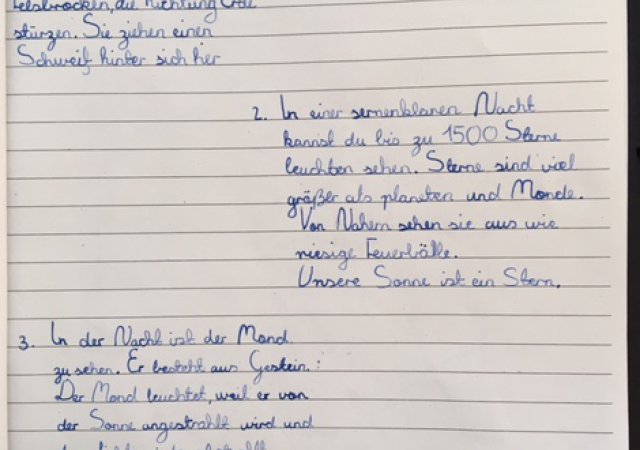 Felsbrocken, die Richtung Erde
stürzen. Sie ziehen einen
Schweif hinter sich her
2. In einer sernenklaren Nacht
kannst du bis zu 1500 Sterne
leuchten sehen. Sterne sind viel
größer als planeten und Monde.
Von Nahem sehen sie aus wie
riesige Feuerbälle.
Unsere Sonne ist ein Stern.
3. In der Nacht ist der Mond
zu sehen. Er besteht aus Gestein.:
Der Mond leuchtet, weil er von
der Sonne angestrahlt wird und